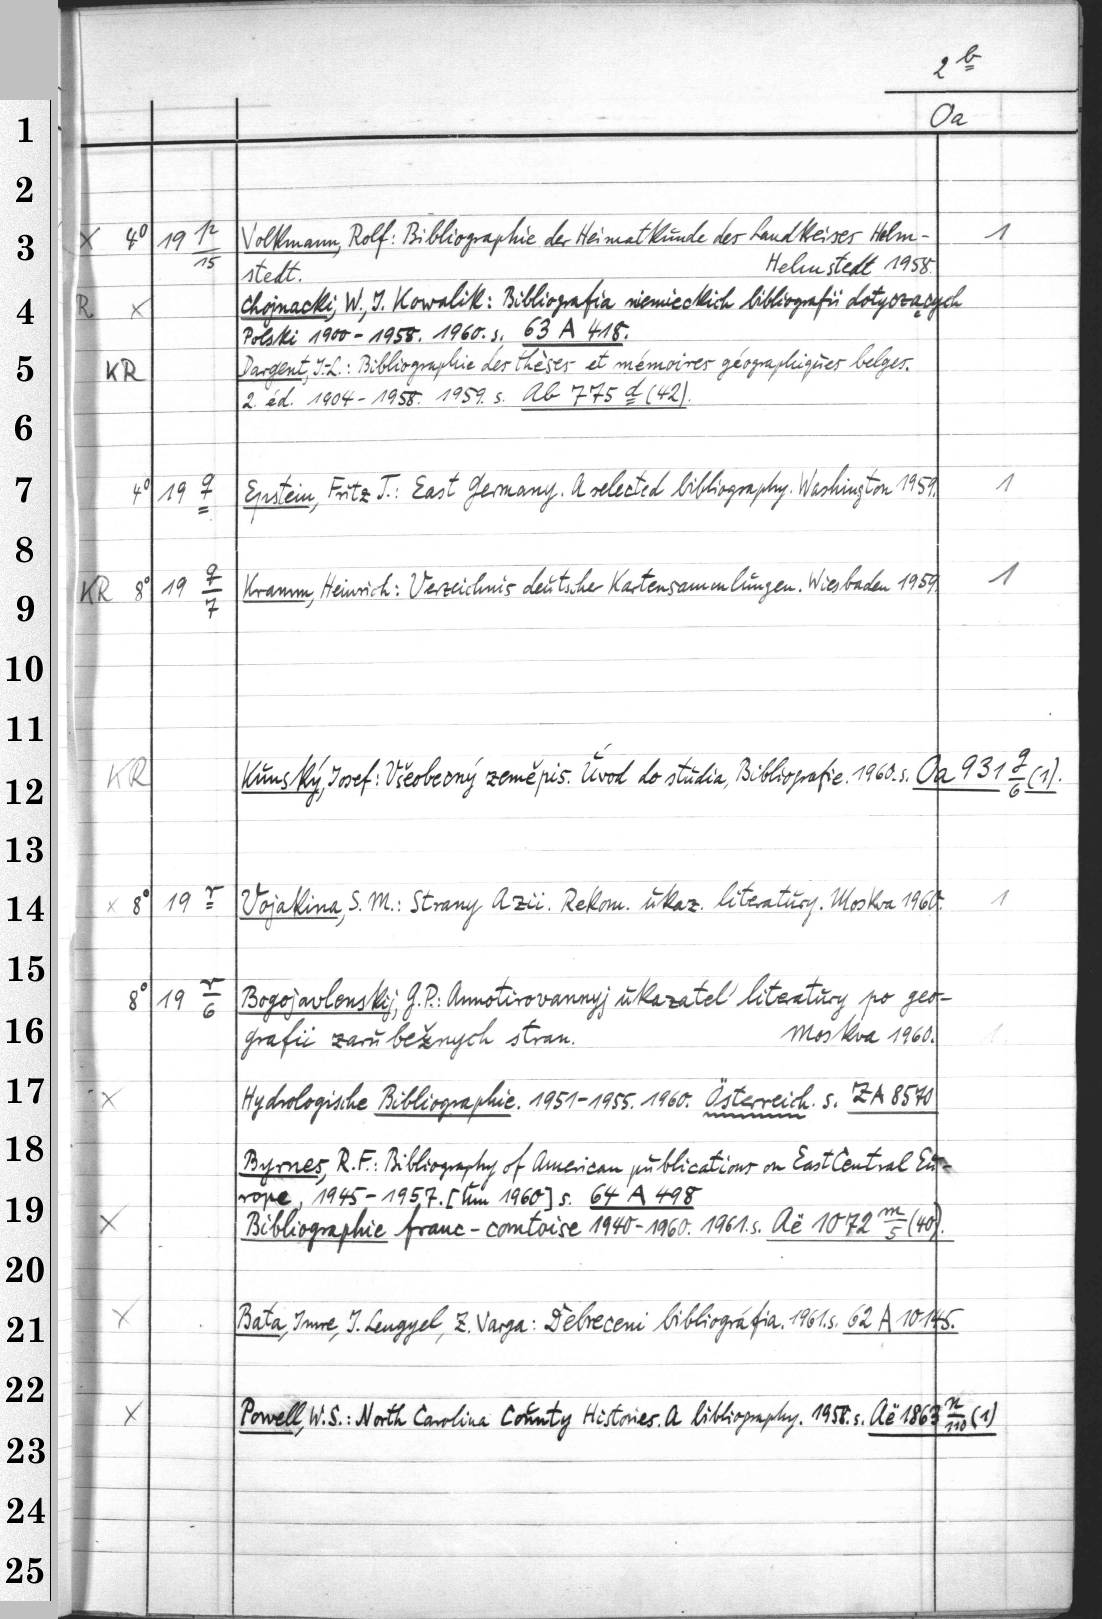 2 b
Oa
1
2
3 X 4° 19 p/15 Volkmann, Rolf: Bibliographie der Heimatkunde des Landkreises Helm- 1
stedt. Helmstedt 1958.
4 R X Chojnacki, W., J. Kowalik: Bibliografia niemieckich bibliografii dotyczących
Polski 1900-1958. 1960. s. 63 A 418.
5 KR Dargent, J.-L.: Bibliographie des thèses et mémoires géographiques belges.
2. éd. 1904-1958. 1959. s. Ab 775 d (42).
6
7 4° 19 q Epstein, Fritz T.: East Germany. A selected bibliography. Washington 1959. 1
8
9 KR 8° 19 q/7 Kramm, Heinrich: Verzeichnis deutscher Kartensammlungen. Wiesbaden 1959. 1
10
11
12 KR Kunský, Josef: Všeobecný zeměpis. Úvod do studia, Bibliografie. 1960. s. Oa 931 g/6 (1).
13
14 x 8° 19 r Vojakina, S. M.: Strany Azii. Rekom. ukaz. literatury. Moskva 1960. 1
15
8° 19 r/6 Bogojavlenskij, G.P.: Annotirovannyj ukazatel' literatury po geo-
16 grafii zarubežnych stran. Moskva 1960. 1
17 X Hydrologische Bibliographie. 1951-1955. 1960. Österreich. s. ZA 8570
18 Byrnes, R.F.: Bibliography of American publications on East Central Eu-
rope, 1945-1957. [um 1960] s. 64 A 498
19 X Bibliographie franc-comtoise 1940-1960. 1961. s. Aë 1072 m/5 (40).
20
21 X Bata, Imre, I. Lengyel, Z. Varga: Debreceni bibliográfia. 1961. s. 62 A 10145.
22
X Powell, W.S.: North Carolina County Histories. A bibliography. 1958. s. Aë 1863 n/110 (1)
23
24
25